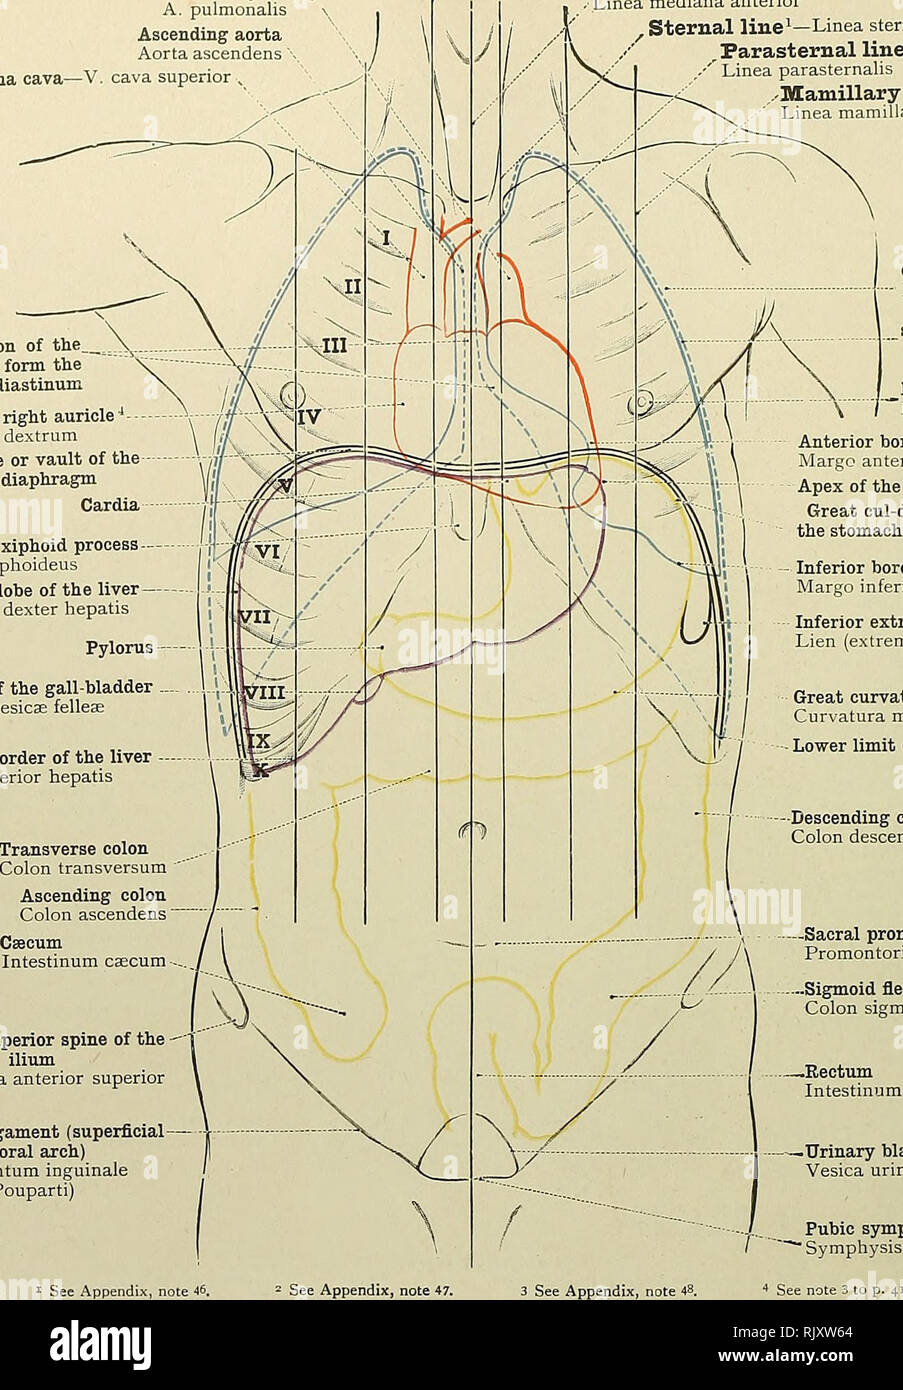 A. pulmonalis
Ascending aorta
Aorta ascendens
na cava—V. cava superior
Linea mediana anterior
Sternal line¹—Linea ster
Parasternal line
Linea parasternalis
Mamillary
Linea mamilla
I
II
III
IV
V
VI
VII
VIII
IX
X
on of the
form the
diastinum
right auricle⁴
dextrum
e or vault of the
diaphragm
Cardia
xiphoid process
phoideus
lobe of the liver
dexter hepatis
Pylorus
f the gall-bladder
esicæ felleæ
order of the liver
erior hepatis
Transverse colon
Colon transversum
Ascending colon
Colon ascendens
Cæcum
Intestinum cæcum
perior spine of the
ilium
a anterior superior
gament (superficial
oral arch)
ntum inguinale
Pouparti)
Anterior bor
Margo anter
Apex of the
Great cul-d
the stomach
Inferior bor
Margo infer
Inferior extr
Lien (extrem
Great curvat
Curvatura m
Lower limit
Descending c
Colon descen
Sacral prom
Promontori
Sigmoid fle
Colon sigm
Rectum
Intestinum
Urinary bla
Vesica urin
Pubic symp
Symphysis
¹ See Appendix, note 46.
² See Appendix, note 47.
3 See Appendix, note 48.
⁴ See note 3 to p. 41
alamy
Image ID: RJXW64
www.alamy.com